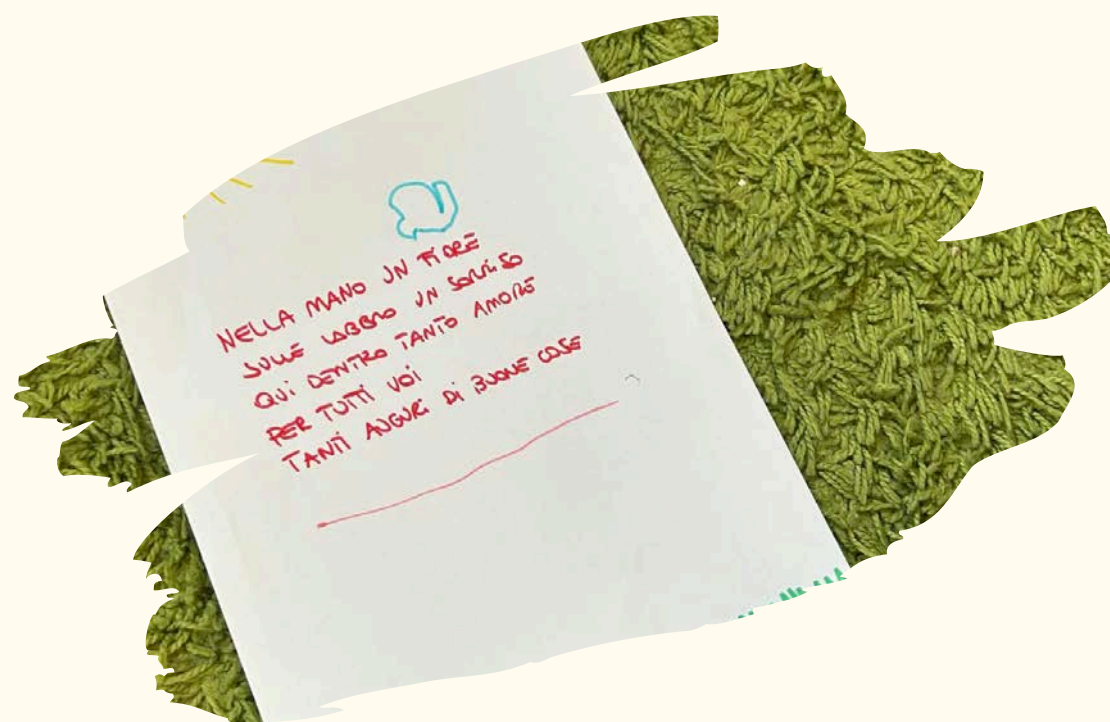 NELLA MANO UN FIORE
SULLE LABBRO UN SORRISO
QUI DENTRO TANTO AMORE
PER TUTTI VOI
TANTI AUGURI DI BUONE COSE